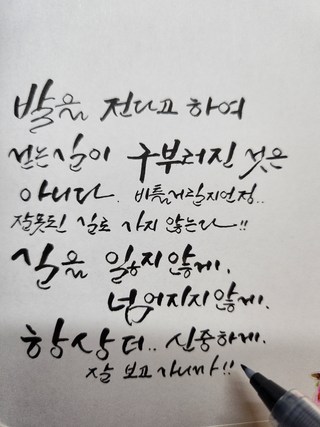 발을 전다고 하여
걷는 길이 구부러진 것은
아니다. 비틀거릴지언정..
잘못된 길로 가지 않는다!!
길을 잃하지 않게.
넘어지지 않게.
항상 더.. 신중하게.
잘 보고 가니까!!